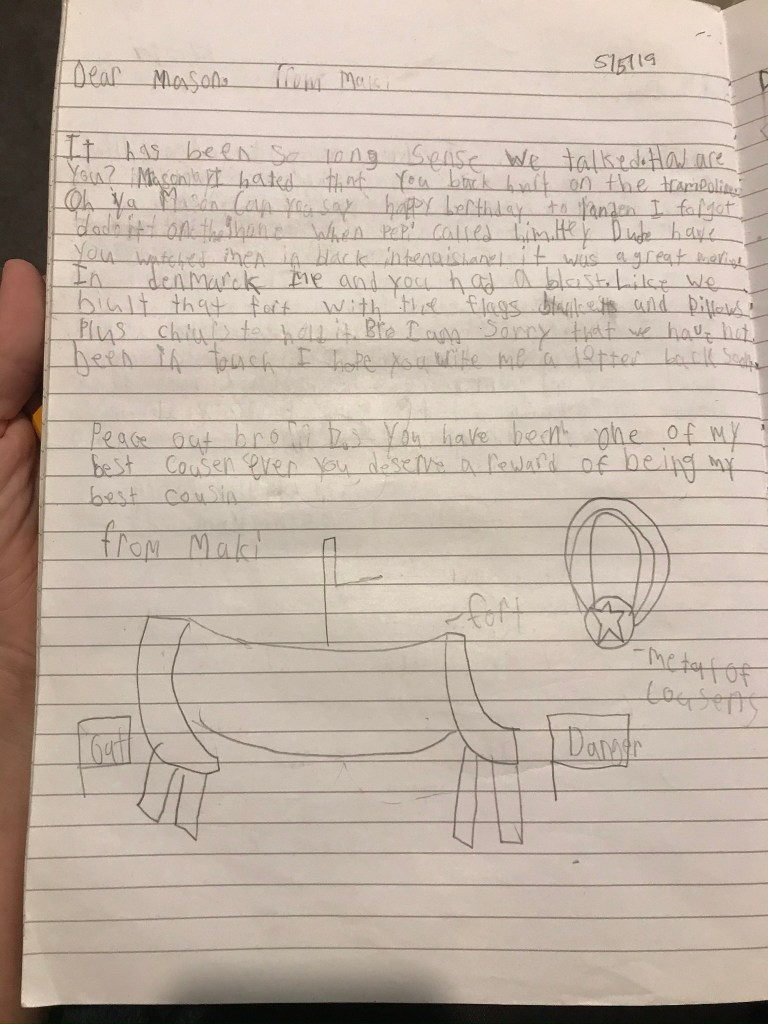 5/5/19
Dear Mason. from Maki
It has been so long sense we talked. How are
you? Mason I hated that you back on the trampoline
Oh ya Mason can you say happy berthday to I forgot
to on the phone when pepi called him. Hey Dude have
you watched men in black it was a great movie
In denmarck me and you had a blast. Like we
biult that fort with the flags blankets and Pillows
Plus to hold it. Bro I am sorry that we have not
been in touch I hope you write me a letter back soon.
Peace out bro you have been one of my
best cousen ever you deserve a reward of being my
best cousin
from Maki
-fort
-metal of
cousens
Out
Danger